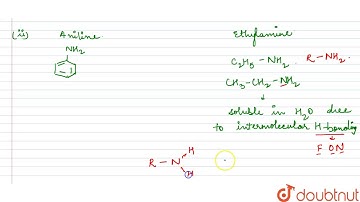 (ii) Aniline Ethylamine
NH2
C2H5 – NH2 R – NH2
CH3 – CH2 – NH2
soluble in H2O due
to intermolecular H-bonding
F O N
H
R – N
H
doubtnut